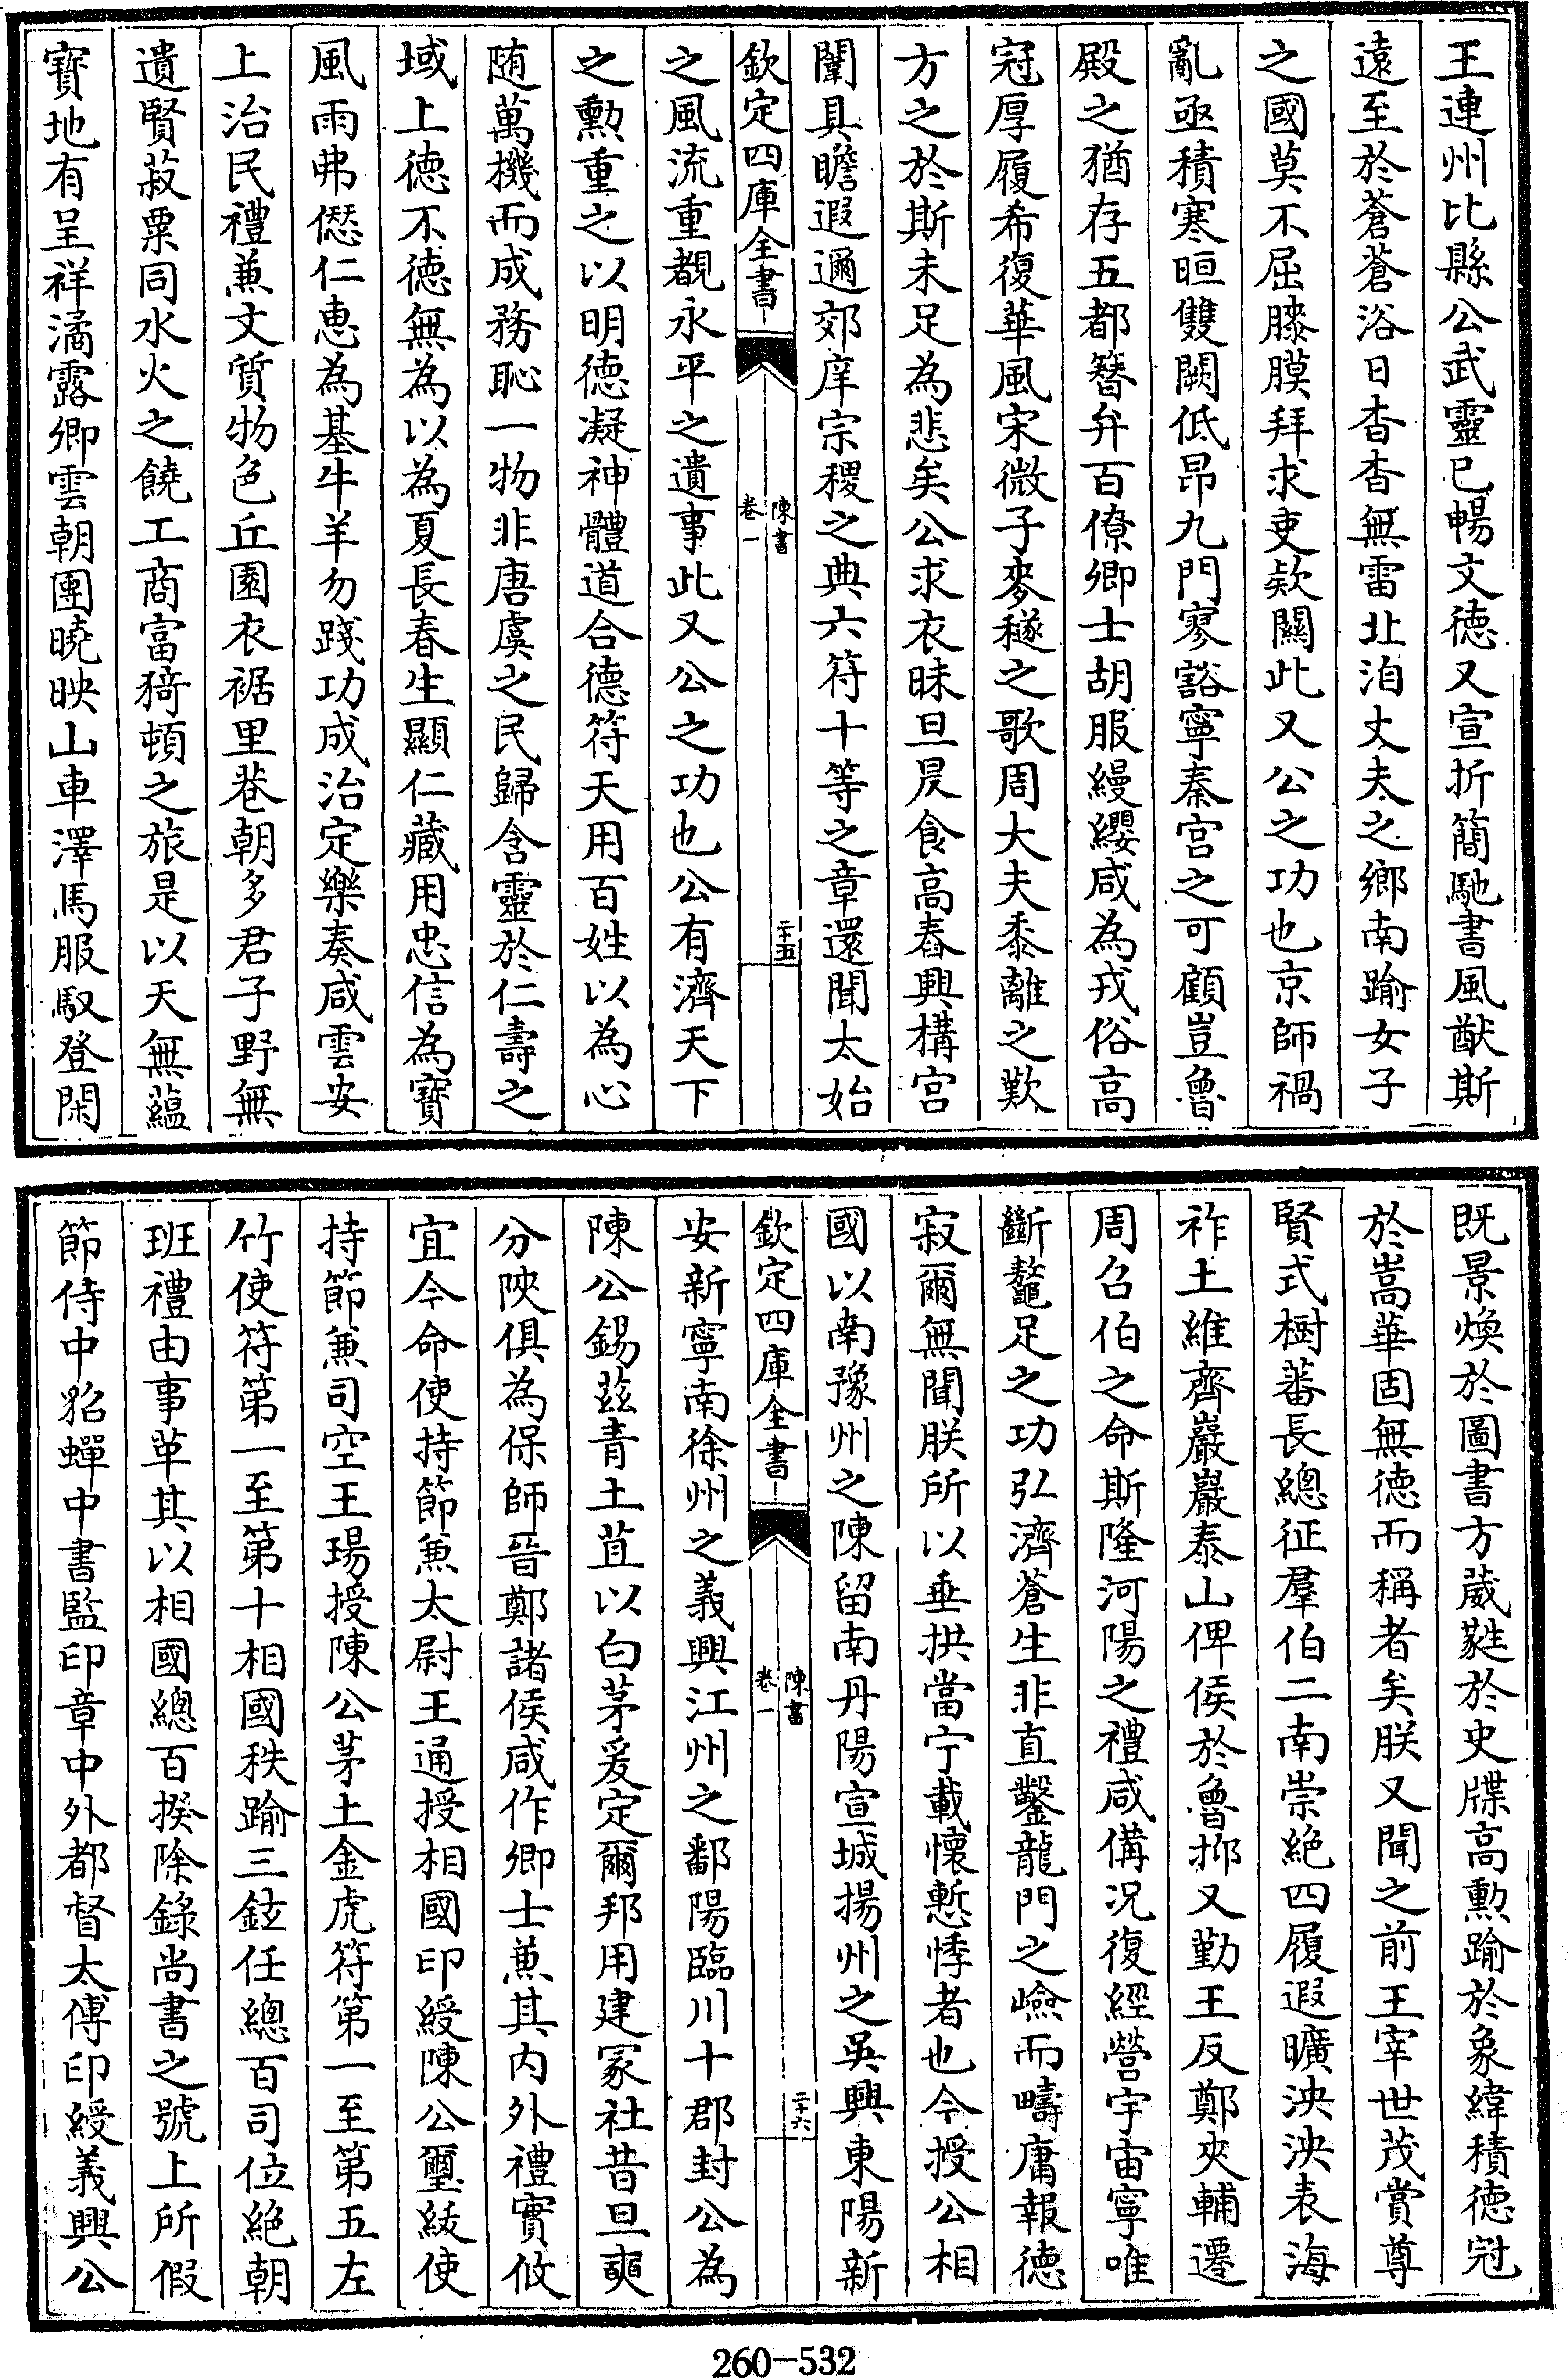 王連州比縣公武靈已暢文徳又宣折簡馳書風猷斯
遠至於蒼蒼浴日杳杳無雷北洎丈夫之鄉南踰女子
之國莫不屈膝膜拜求吏欵關此又公之功也京師禍
亂亟積寒暄雙闕低昻九門寥豁寧秦宫之可顧豈魯
殿之猶存五都簪弁百僚卿士胡服縵纓咸為戎俗高
冠厚履希復華風宋微子麥穟之歌周大夫黍離之歎
方之於斯未足為悲矣公求衣昧旦昃食高舂興構宫
闈具瞻遐邇郊庠宗稷之典六符十等之章還聞太始
欽定四庫全書
陳書
卷一
二十五
之風流重覩永平之遺事此又公之功也公有濟天下
之勲重之以明徳凝神體道合德符天用百姓以為心
随萬機而成務恥一物非唐虞之民歸含靈於仁壽之
域上徳不徳無為以為夏長春生顯仁藏用忠信為寳
風雨弗愆仁惠為基牛羊勿踐功成治定樂奏咸雲安
上治民禮兼文質物色丘園衣裾里巷朝多君子野無
遺賢菽粟同水火之饒工商富猗頓之旅是以天無蘊
寳地有呈祥潏露卿雲朝團曉映山車澤馬服馭登閑
既景煥於圖書方葳蕤於史牒高勲踰於象緯積徳冠
於嵩華固無徳而稱者矣朕又聞之前王宰世茂賞尊
賢式樹蕃長總征羣伯二南崇絶四履遐曠泱泱表海
祚土維齊巖巖泰山俾侯於魯抑又勤王反鄭夾輔遷
周召伯之命斯隆河陽之禮咸備况復經營宇宙寧唯
斷鼇足之功弘濟蒼生非直鑿龍門之嶮而疇庸報徳
寂爾無聞朕所以垂拱當宁載懷慙悸者也今授公相
國以南豫州之陳留南丹陽宣城揚州之吳興東陽新
欽定四庫全書
陳書
卷一
二十六
安新寧南徐州之義興江州之鄱陽臨川十郡封公為
陳公錫茲青土苴以白茅爰定爾邦用建冢社昔旦奭
分陜俱為保師晉鄭諸侯咸作卿士兼其内外禮實攸
宜今命使持節兼太尉王通授相國印綬陳公璽紱使
持節兼司空王瑒授陳公茅土金虎符第一至第五左
竹使符第一至第十相國秩踰三鉉任總百司位絶朝
班禮由事革其以相國總百揆除錄尚書之號上所假
節侍中貂蟬中書監印章中外都督太傅印綬義興公
260-532